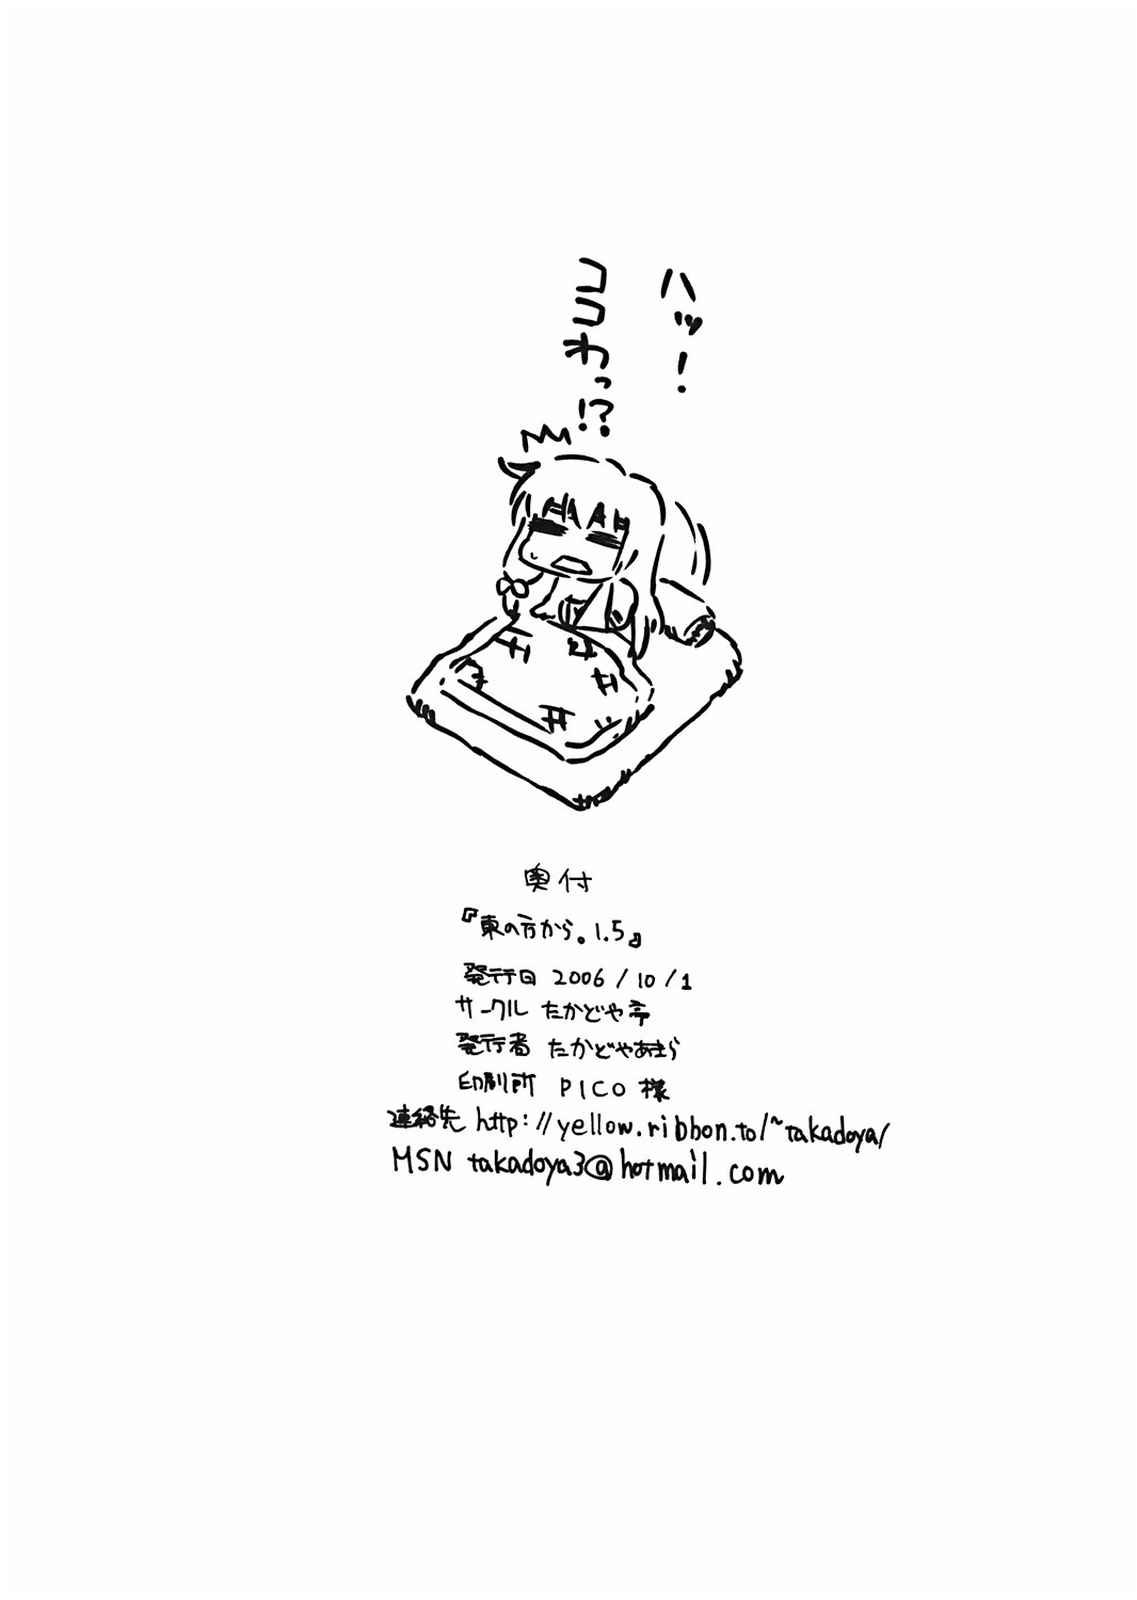 ハッ!
ココわっ!?
奥付
『東の方から。1.5』
発行日 2006/10/1
サークル たかどや亭
発行者 たかどやあきら
印刷所 PICO 様
連絡先 http://yellow.ribbon.to/~takadoya/
MSN takadoya3@hotmail.com